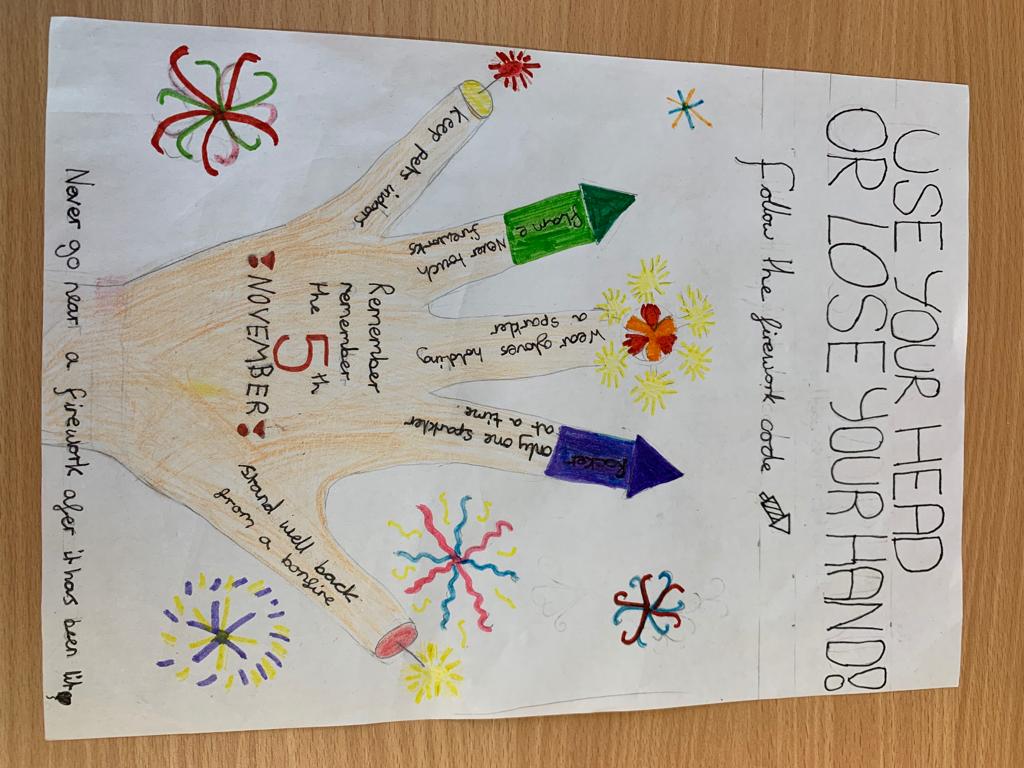 USE YOUR HEAD
OR LOSE YOUR HAND!
Follow the firework code
Keep pets indoors
Flame
Never touch
fireworks
Wear gloves holding
a sparkler
Rocket
only one sparkler
at a time.
Stand well back
from a bonfire
Remember
remember
the 5th
!NOVEMBER!
Never go near a firework after it has been lit